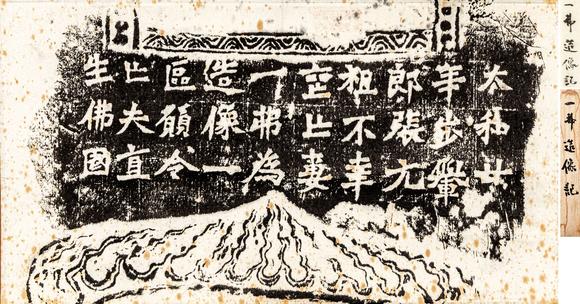 太和廿
年步轝
郎張元
祖不幸
喪亡妻
一弗為
造像一
區願令
亡夫直
生佛國
一弗造像記
一弗造像記